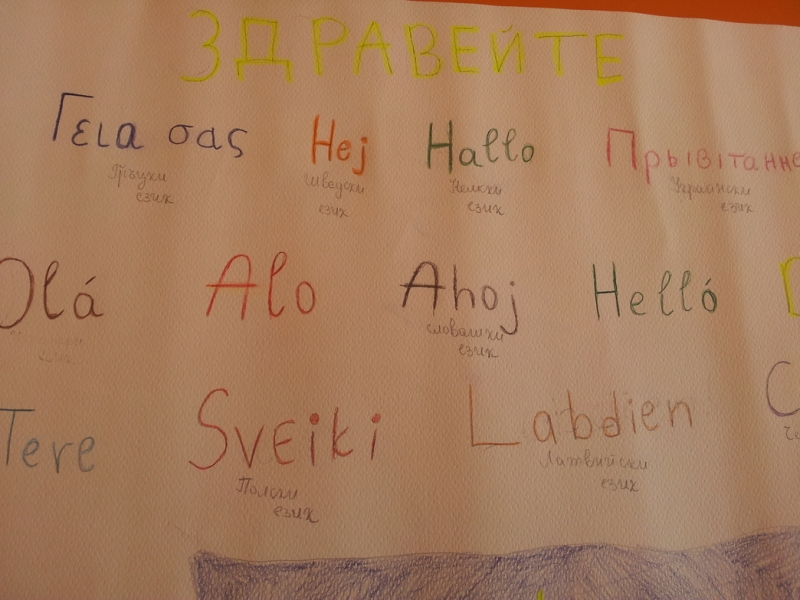 ЗДРАВЕЙТЕ
Γεια σας Hej Hallo Прывітанне
Гръцки език Шведски език Немски език Украински език
Olá Alo Ahoj Helló
словашки език
Tere Sveiki Labdien
Полски език Латвийски език